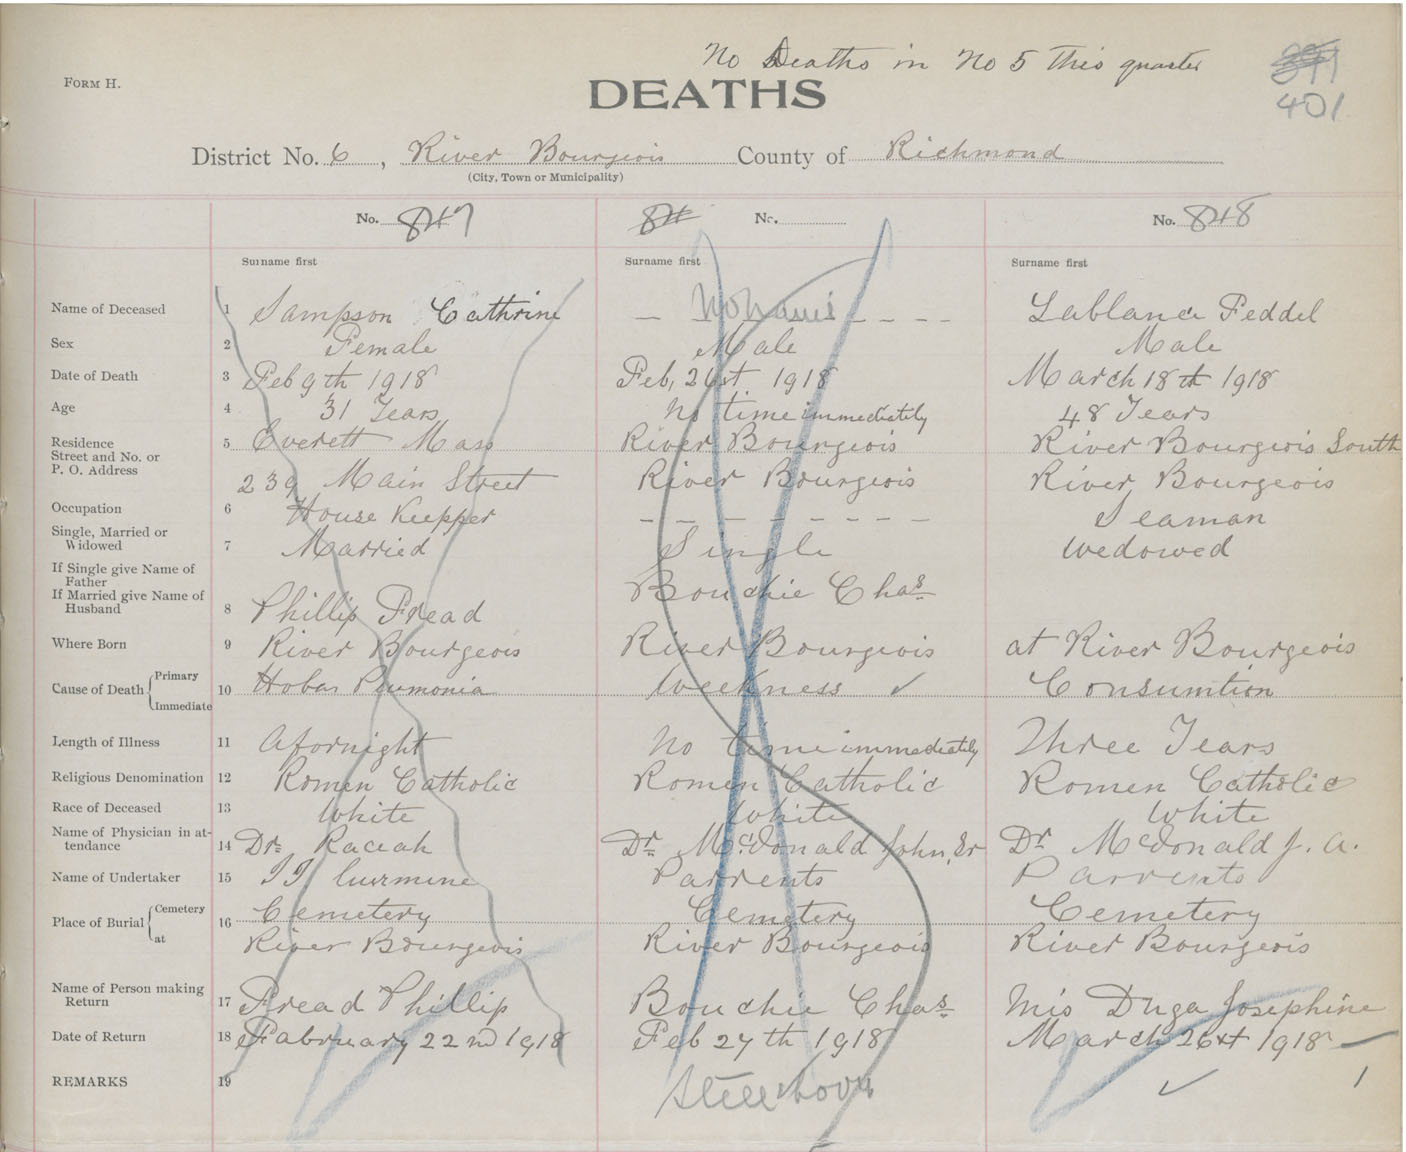 No Deaths in No 5 this quarter
401
FORM H.
DEATHS
District No. 6, River Bourgeois County of Richmond
(City, Town or Municipality)
No. 847
84 No.
No. 848
Surname first
Surname first
Surname first
Name of Deceased 1 Sampson Cathrine No Name Lablance Feddel
Sex 2 Female Male Male
Date of Death 3 Feb 9th 1918 Feb, 21st 1918 March 18th 1918
Age 4 31 Years No time immediately 48 Years
Residence 5 Everett Mass River Bourgeois River Bourgeois South
Street and No. or
P. O. Address 239 Main Street River Bourgeois River Bourgeois
Occupation 6 House Keepper Seaman
Single, Married or
Widowed 7 Married Single Wedowed
If Single give Name of
Father Bouchie Chas
If Married give Name of
Husband 8 Phillip Fread
Where Born 9 River Bourgeois River Bourgeois at River Bourgeois
Cause of Death Primary
Immediate 10 Hobar Pnumonia Weekness ✓ Consumtion
Length of Illness 11 Afornight No time immediately Three Years
Religious Denomination 12 Romen Catholic Romen Catholic Romen Catholic
Race of Deceased 13 White White White
Name of Physician in at-
tendance 14 Dr. Dr. McDonald John, Dr. McDonald J. A.
Name of Undertaker 15 Parrents Parrents
Place of Burial Cemetery
at 16 Cemetery Cemetery Cemetery
River Bourgeois River Bourgeois River Bourgeois
Name of Person making
Return 17 Fread Phillip Bouchie Chas Duga Josephine
Date of Return 18 Fabruary 22nd 1918 Feb 27th 1918 March 1918
REMARKS 19 ✓